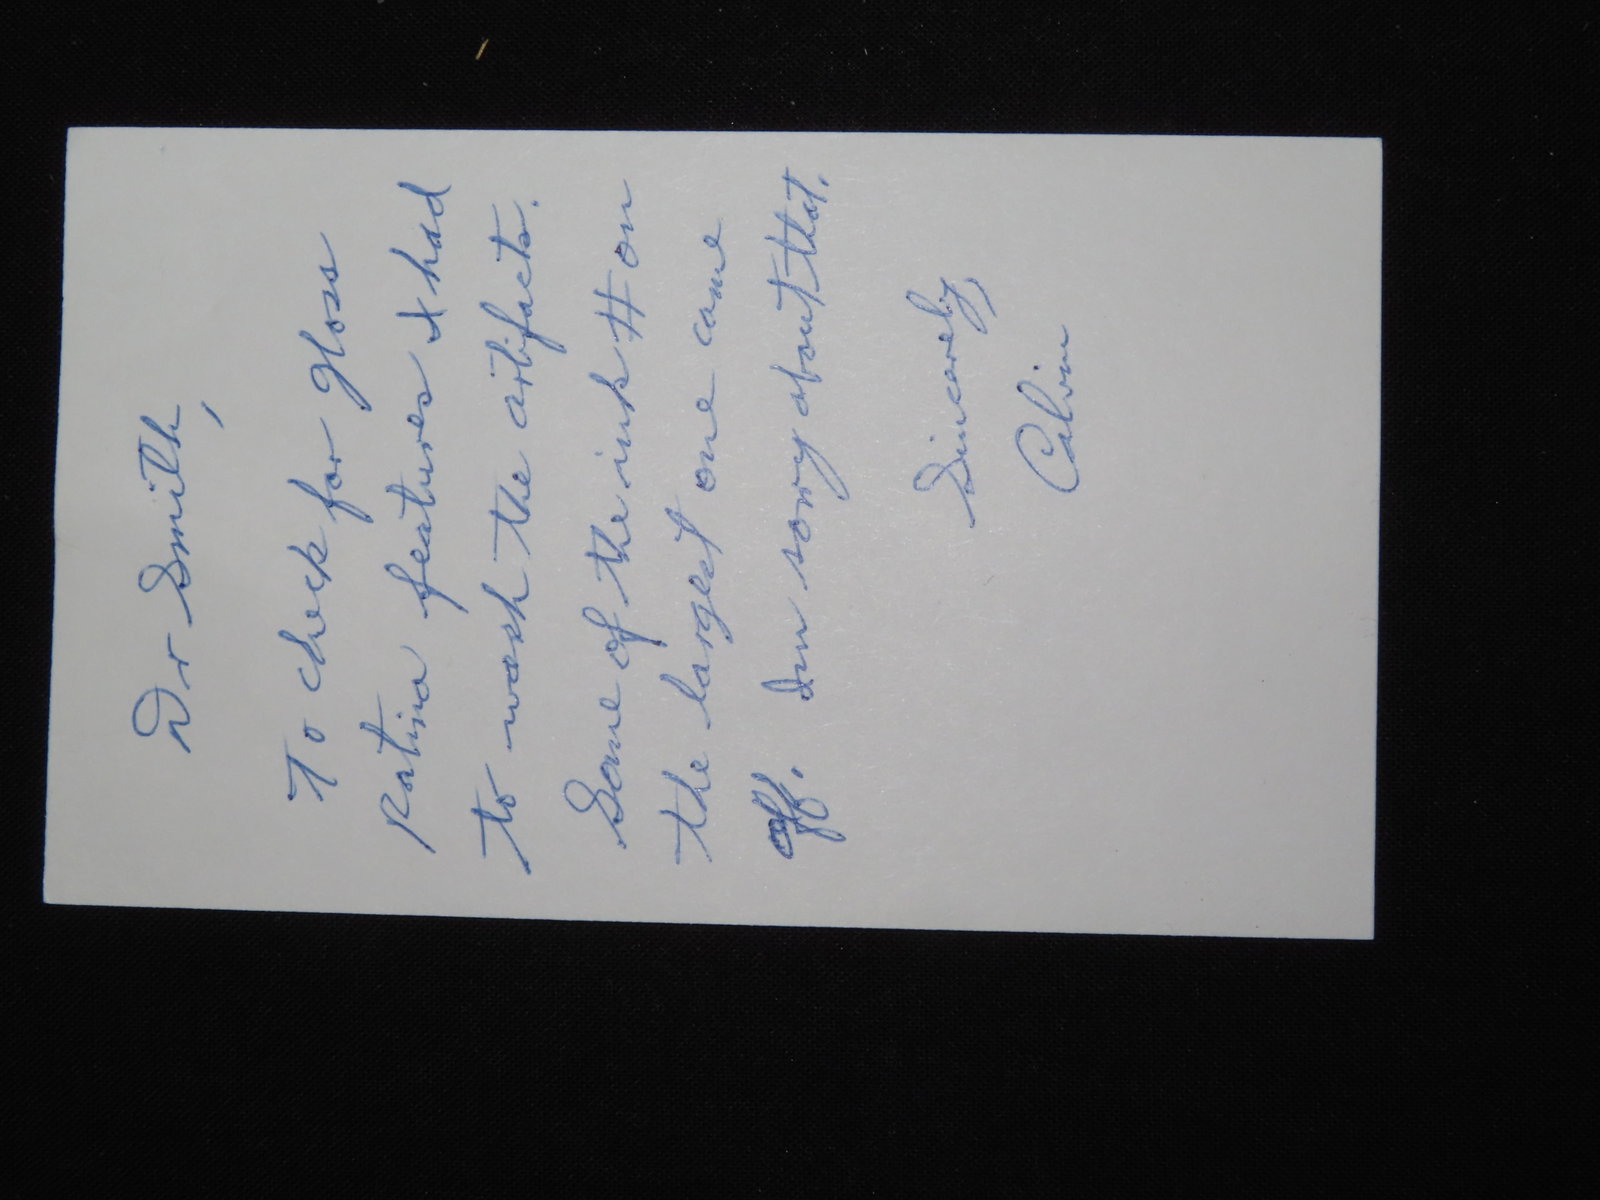 Dr Smith,
To check for gloss
Patina features I had
to wash the artifacts.
Some of the ink # on
the largest one came
off. Im sorry about that.
Sincerely,
Calvin